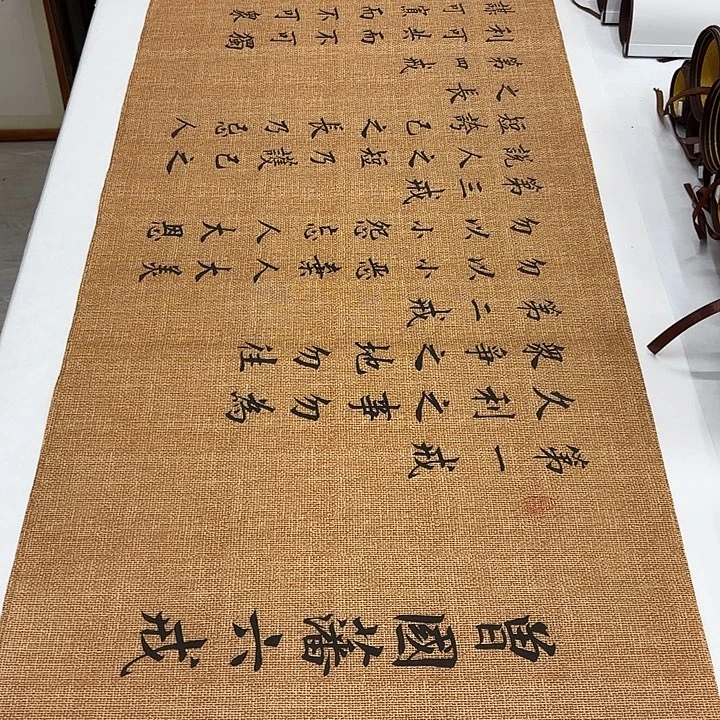 曾國藩六戒
第一戒
久利之事勿為
衆爭之地勿往
第二戒
勿以小惡棄人大美
勿以小怨忘人大恩
第三戒
說人之短乃護己之
短誇己之長乃忌人
之長
第四戒
利可共而不可獨
謀可寡而不可衆